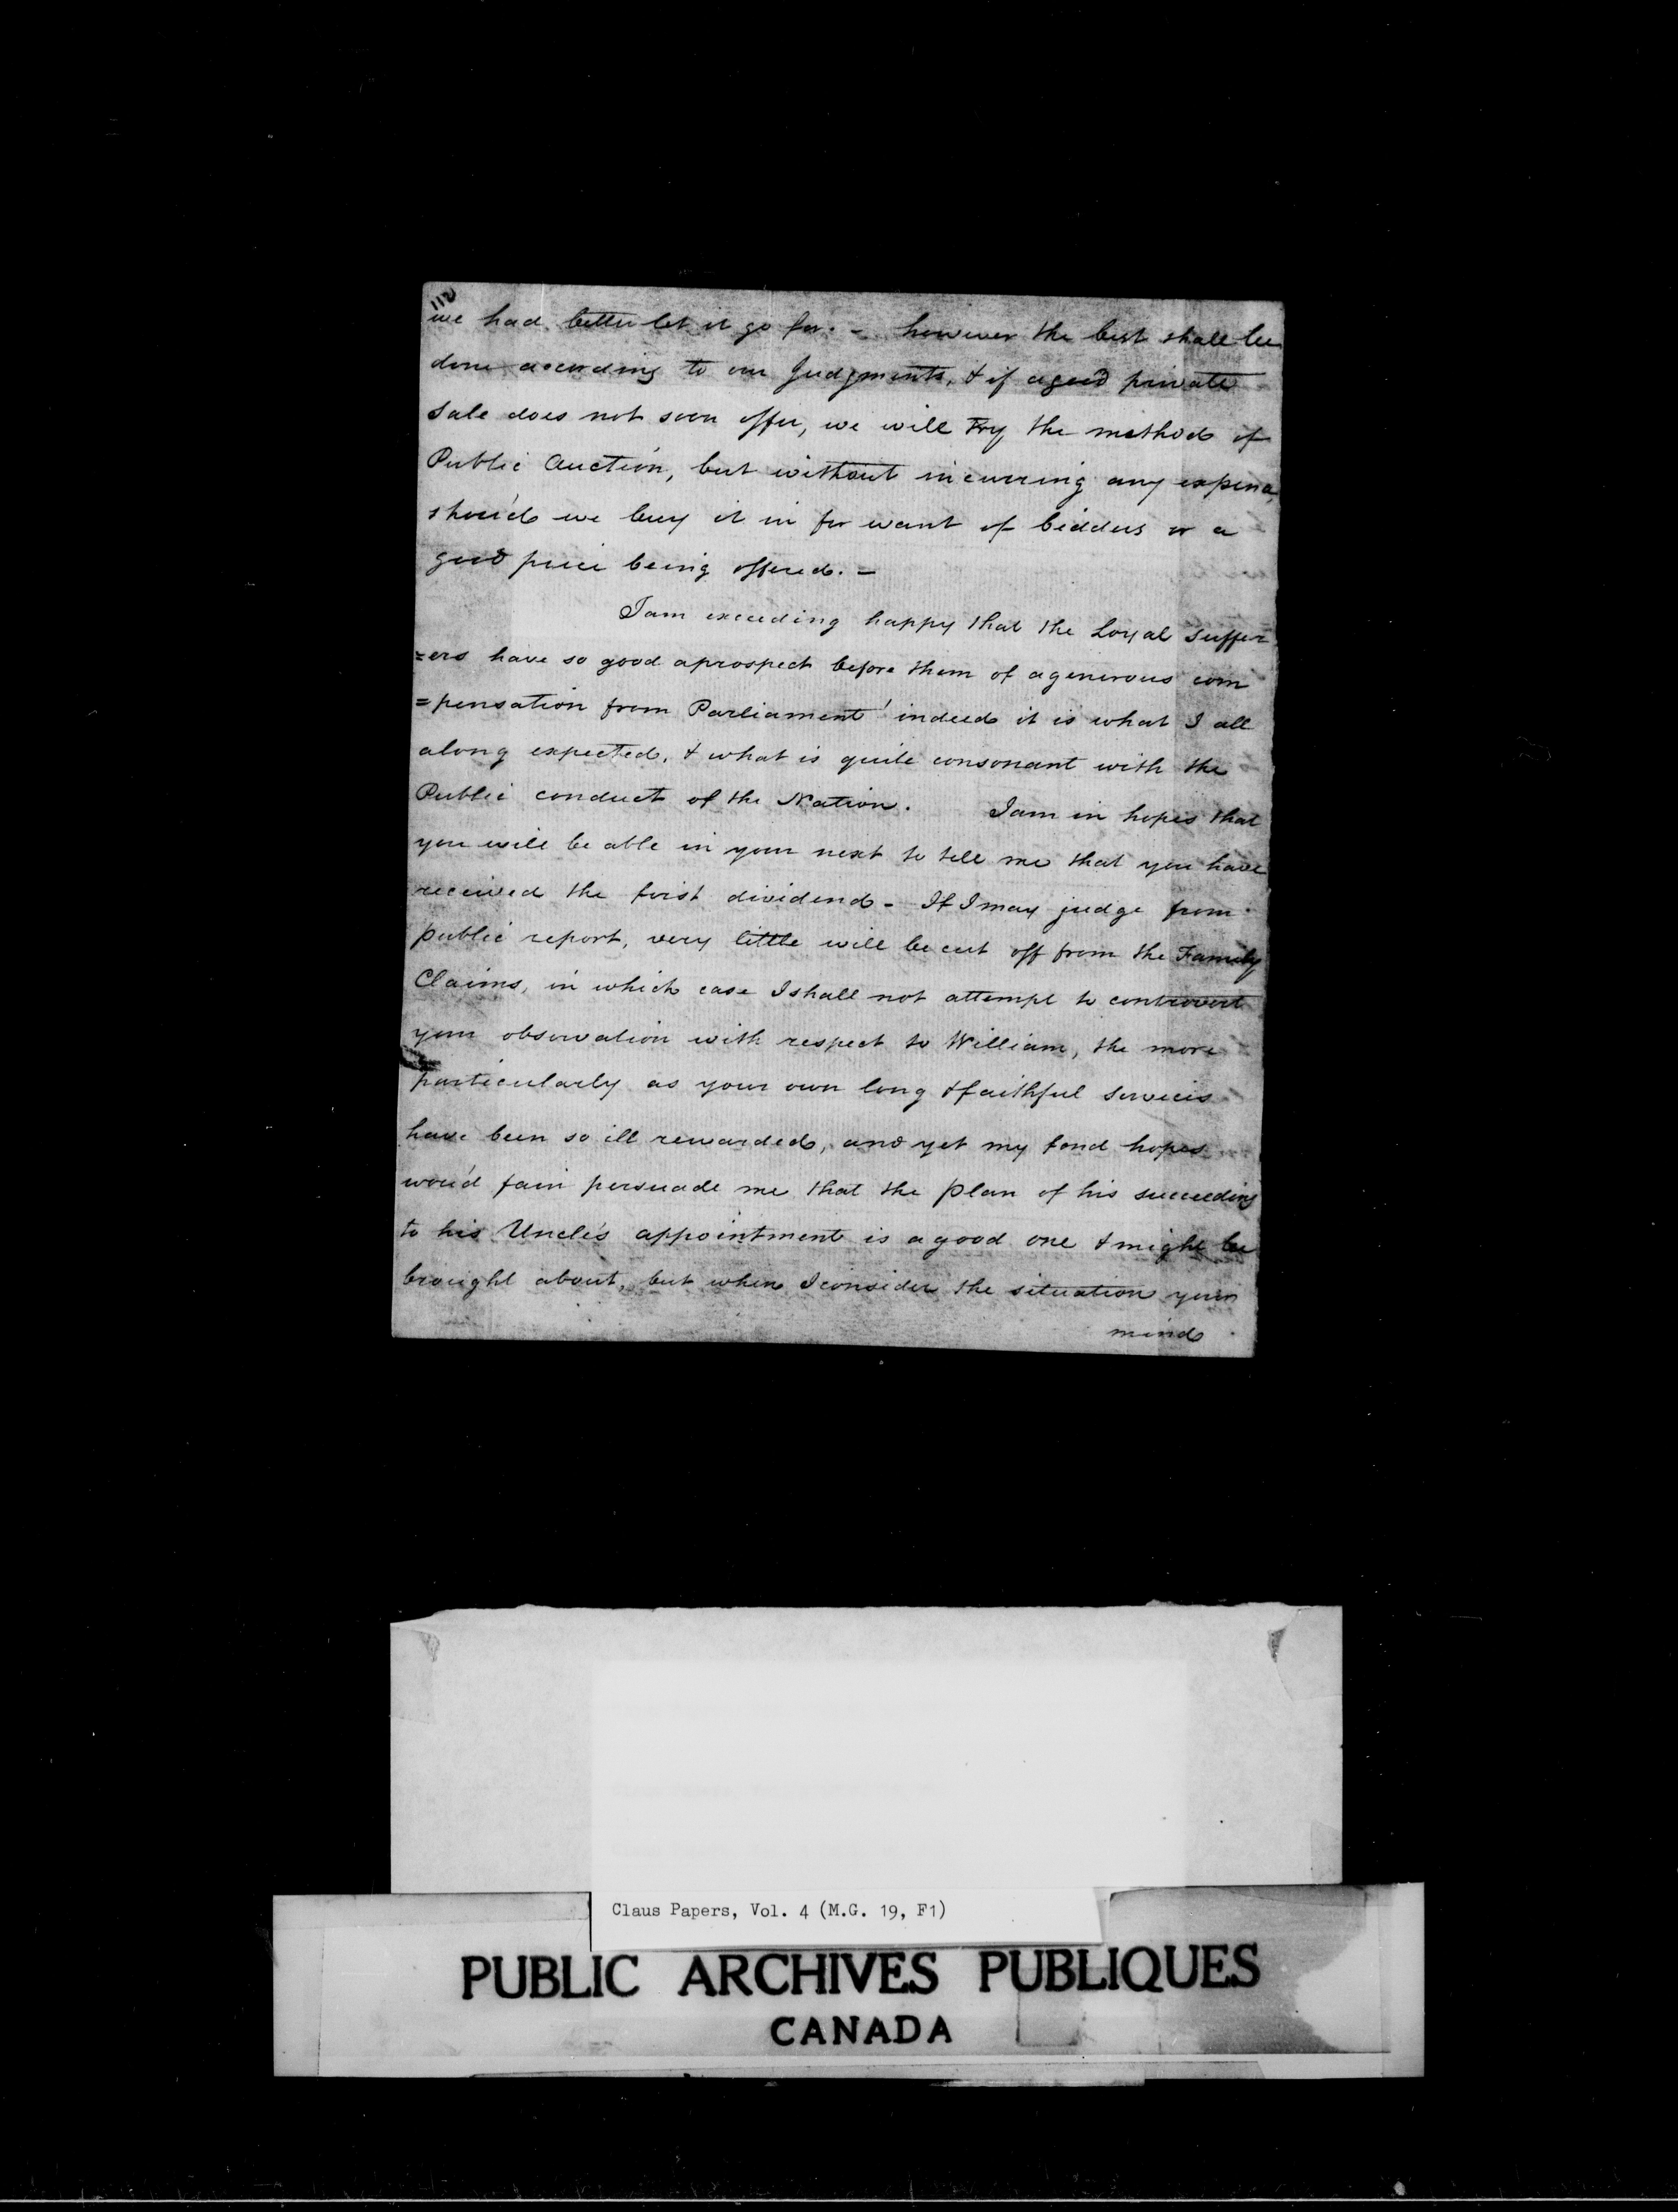 112
we had better let it go for. - however the best shall be
done according to our Judgments, & if a good private
Sale does not soon offer, we will Try the method of
Public Auction, but without incurring any expence,
shou'd we buy it in for want of bidders or a
good price being offered. -
I am exceeding happy that the Loyal Suffer
=ers have so good a prospect before them of a generous com
=pensation from Parliament' indeed it is what I all
along expected, & what is quite consonant with the
Public conduct of the Nation. I am in hopes that
you will be able in your next to tell me that you have
received the first dividend - If I may judge from
public report, very little will be cut off from the Family
Claims, in which case I shall not attempt to controvert
your observation with respect to William, the more
particularly as your own long & faithful Services
have been so ill rewarded, and yet my fond hopes
wou'd fain persuade me that the plan of his succeeding
to his Uncle's appointment is a good one & might be
brought about, but when I consider the situation your
mind
Claus Papers, Vol. 4 (M.G. 19, F1)
PUBLIC ARCHIVES PUBLIQUES
CANADA